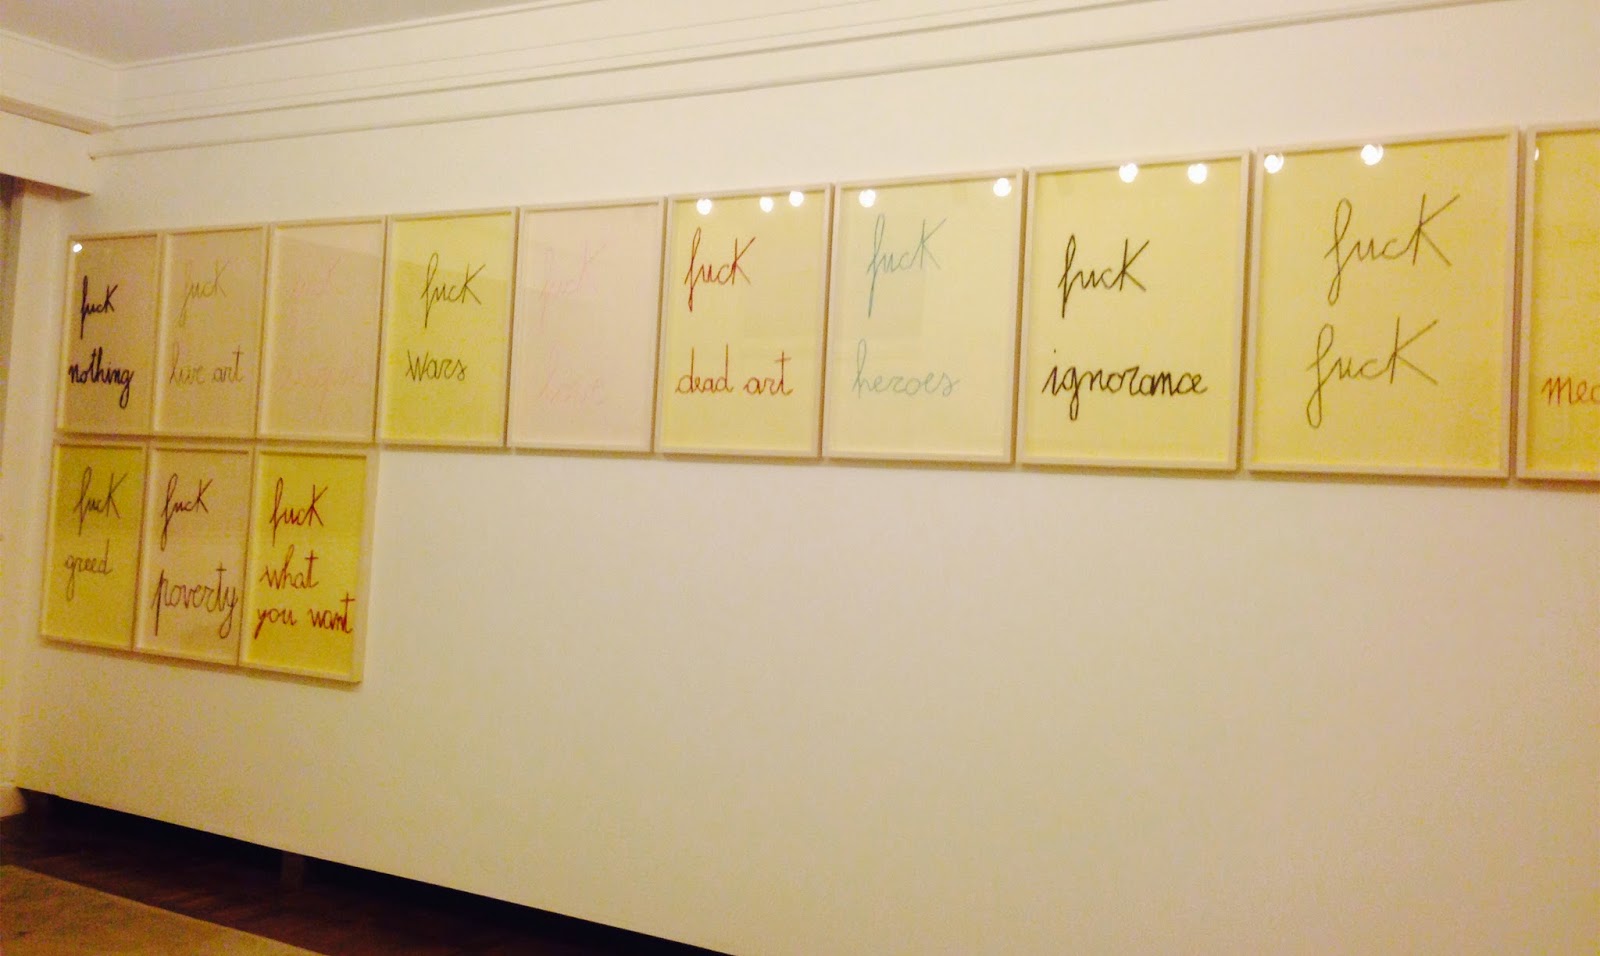 fuck
nothing
fuck
live art
fuck
fuck
wars
fuck
love
fuck
dead art
fuck
heroes
fuck
ignorance
fuck
fuck
fuck
greed
fuck
poverty
fuck
what
you want